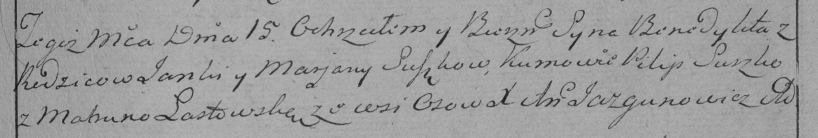 Tegoż Mca Dnia 15. Ochrzciłem y Bierzm Syna Benedykta z
Rodzicow Janki y Marjany Suszkow, Kumowie Pilip Suszko
z Matruno Łastowską ze wsi Osowa X Ant Jazgunowicz